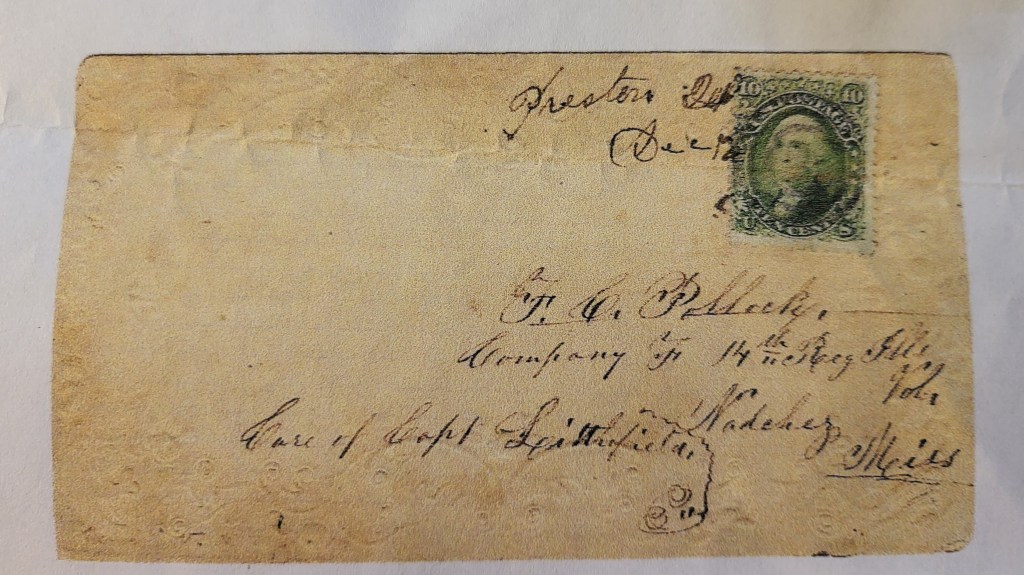 Preston
Dec 12
10 10
U.S. POSTAGE
TEN CENTS
U S
F. C. Pollock,
Company F 14th Reg Ills
Vols
Nadchez
Care of Capt Littlefield,
Miss